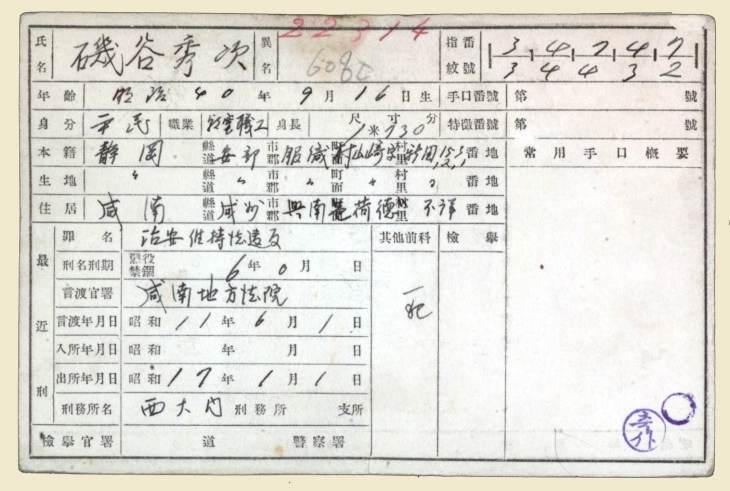 22314
氏名 磯谷秀次 異名 指紋番號 3 4 7 4 7
3 4 4 3 2
年齡 明治 40 年 9 月 16 日生 手口番號 第 號
身分 平民 職業 身長 尺 寸 分 1 米 730 特徵番號 第 號
本籍 靜岡 縣道 安部 市郡 服織 町面 村里 番地 常用手口槪要
生地 〃 縣道 〃 市郡 〃 町面 〃 村里 〃 番地
住居 咸南 縣道 咸州 市郡 興南 荷德 村里 不詳 番地
最近刑
罪名 治安維持法違反 其他前科 檢擧
刑名刑期 懲役 禁錮 6 年 0 月 日
言渡官署 咸南地方法院
言渡年月日 昭和 11 年 6 月 1 日
入所年月日 昭和 年 月 日
出所年月日 昭和 17 年 1 月 1 日
刑務所名 西大門 刑務所 支所
檢擧官署 道 警察署